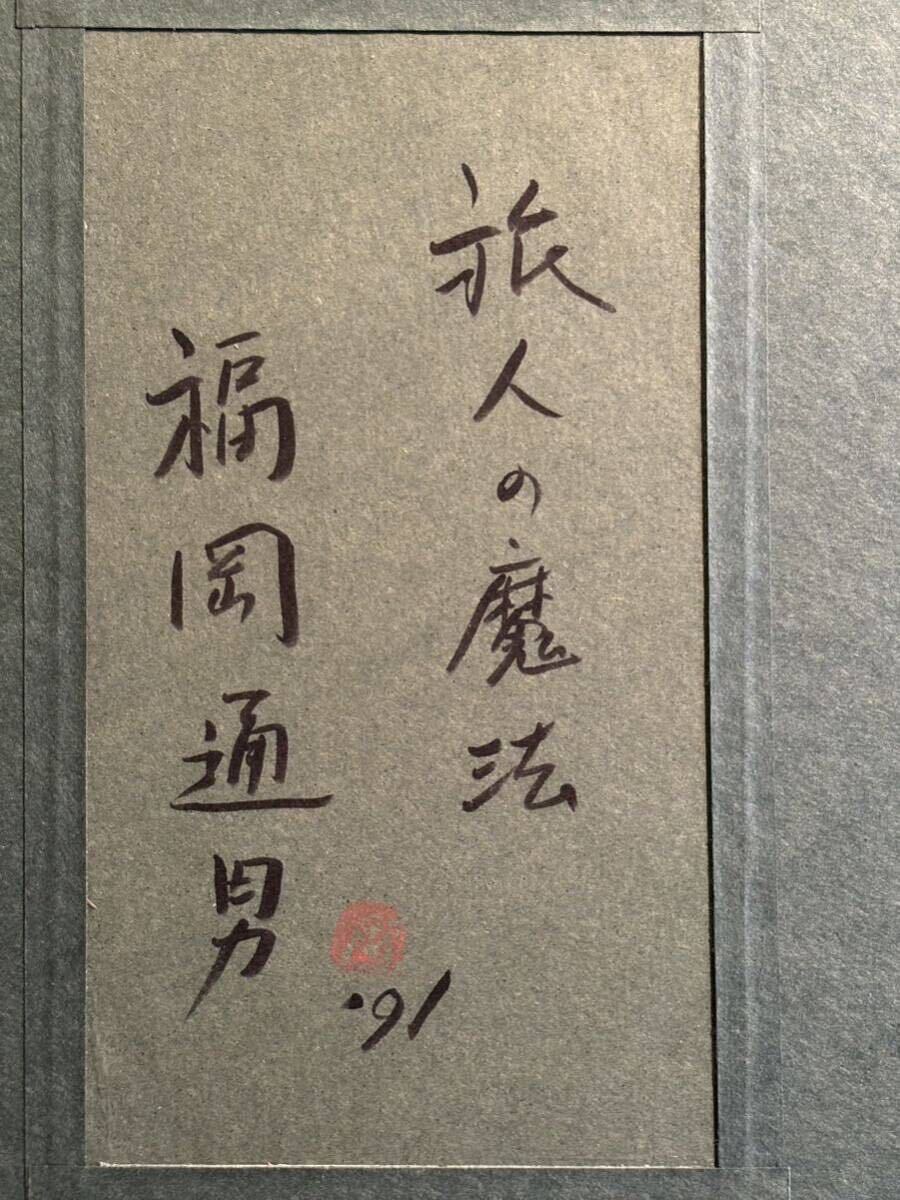 旅人の魔法
福岡通男
'91